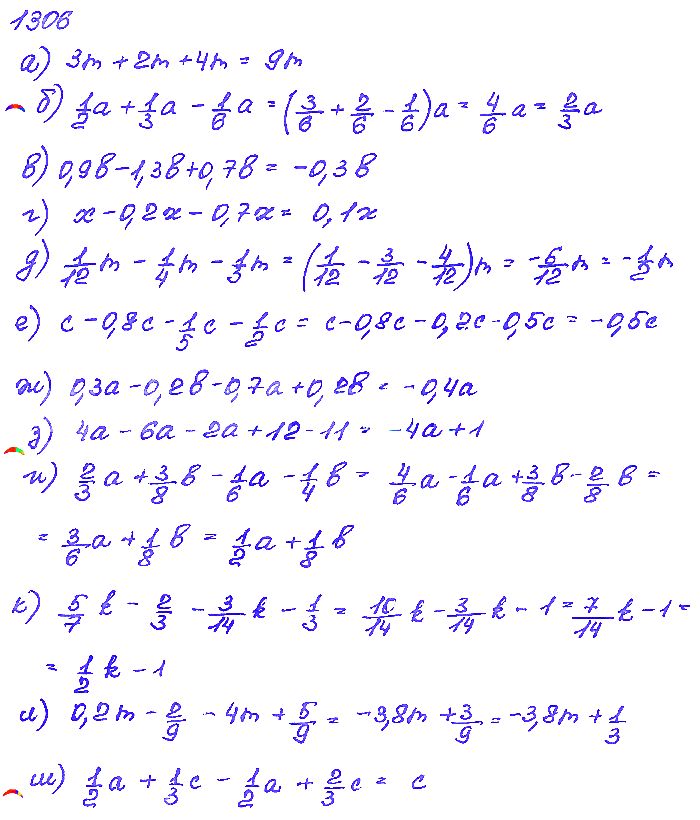 1306
а) 3m + 2m + 4m = 9m
б) 1/2 a + 1/3 a - 1/6 a = (3/6 + 2/6 - 1/6) a = 4/6 a = 2/3 a
в) 0,9в - 1,3в + 0,7в = -0,3в
г) x - 0,2x - 0,7x = 0,1x
д) 1/12 m - 1/4 m - 1/3 m = (1/12 - 3/12 - 4/12) m = -6/12 m = -1/2 m
е) c - 0,8c - 1/5 c - 1/2 c = c - 0,8c - 0,2c - 0,5c = -0,5c
ж) 0,3a - 0,2в - 0,7a + 0,2в = -0,4a
з) 4a - 6a - 2a + 12 - 11 = -4a + 1
и) 2/3 a + 3/8 в - 1/6 a - 1/4 в = 4/6 a - 1/6 a + 3/8 в - 2/8 в =
= 3/6 a + 1/8 в = 1/2 a + 1/8 в
к) 5/7 k - 2/3 - 3/14 k - 1/3 = 10/14 k - 3/14 k - 1 = 7/14 k - 1 =
= 1/2 k - 1
л) 0,2m - 2/9 - 4m + 5/9 = -3,8m + 3/9 = -3,8m + 1/3
м) 1/2 a + 1/3 c - 1/2 a + 2/3 c = c